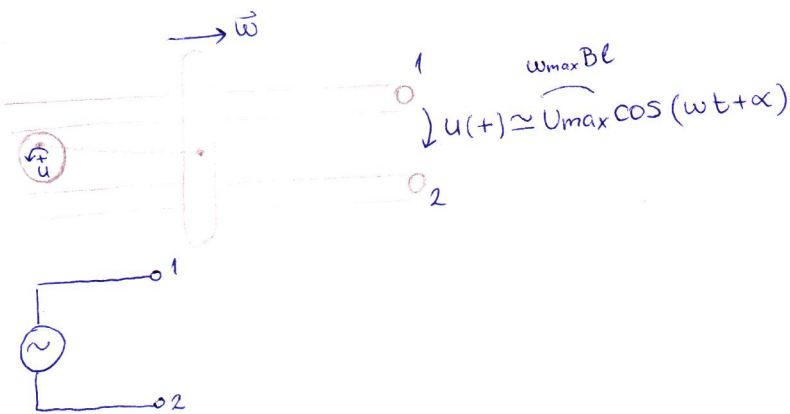 w⃗
1
wmaxBl
u(+) ≃ Umax cos (wt+α)
+
u
2
1
~
2